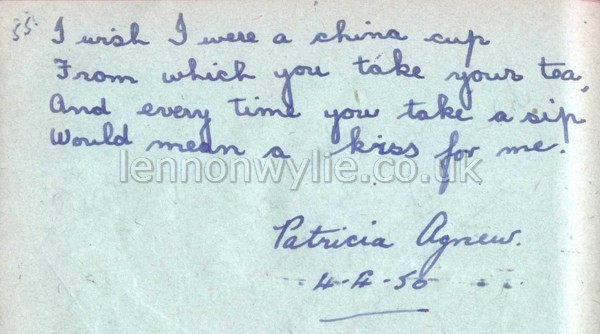 55.
I wish I were a china cup
From which you take your tea,
And every time you take a sip
Would mean a kiss for me.
lennonwylie.co.uk
Patricia Agnew.
4-4-50